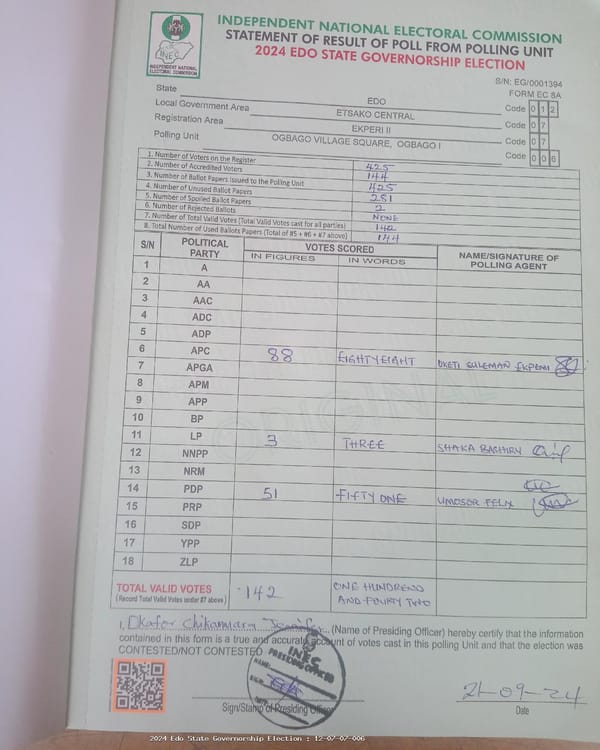 INEC
INDEPENDENT NATIONAL ELECTORAL COMMISSION
INDEPENDENT NATIONAL ELECTORAL COMMISSION
STATEMENT OF RESULT OF POLL FROM POLLING UNIT
2024 EDO STATE GOVERNORSHIP ELECTION
S/N: EG/0001394
FORM EC 8A
State EDO Code 0 1 2
Local Government Area ETSAKO CENTRAL Code 0 7
Registration Area EKPERI II Code 0 7
Polling Unit OGBAGO VILLAGE SQUARE, OGBAGO I Code 0 0 6
1. Number of Voters on the Register 425
2. Number of Accredited Voters 144
3. Number of Ballot Papers Issued to the Polling Unit 425
4. Number of Unused Ballot Papers 281
5. Number of Spoiled Ballot Papers 2
6. Number of Rejected Ballots NONE
7. Number of Total Valid Votes (Total Valid Votes cast for all parties) 142
8. Total Number of Used Ballots Papers (Total of #5 + #6 + #7 above) 144
S/N POLITICAL PARTY VOTES SCORED NAME/SIGNATURE OF POLLING AGENT
IN FIGURES IN WORDS
1 A
2 AA
3 AAC
4 ADC
5 ADP
6 APC 88 EIGHTYEIGHT OKETI SULEMAN EKPEMI
7 APGA
8 APM
9 APP
10 BP
11 LP 3 THREE SHAKA BASHIRU
12 NNPP
13 NRM
14 PDP 51 FIFTY ONE UMOSOR FELIX
15 PRP
16 SDP
17 YPP
18 ZLP
ORIGINAL
TOTAL VALID VOTES 142 ONE HUNDREND
(Record Total Valid Votes under #7 above) AND FOURTY TWO
I, Okafor Chikamara Jennifer (Name of Presiding Officer) hereby certify that the information
contained in this form is a true and accurate account of votes cast in this polling Unit and that the election was
CONTESTED/NOT CONTESTED
INEC
PRESIDING OFFICER
NAME:
SIGN:
DATE:
Sign/Stamp of Presiding Officer
21-09-24
Date
2024 Edo State Governorship Election : 12-07-07-006